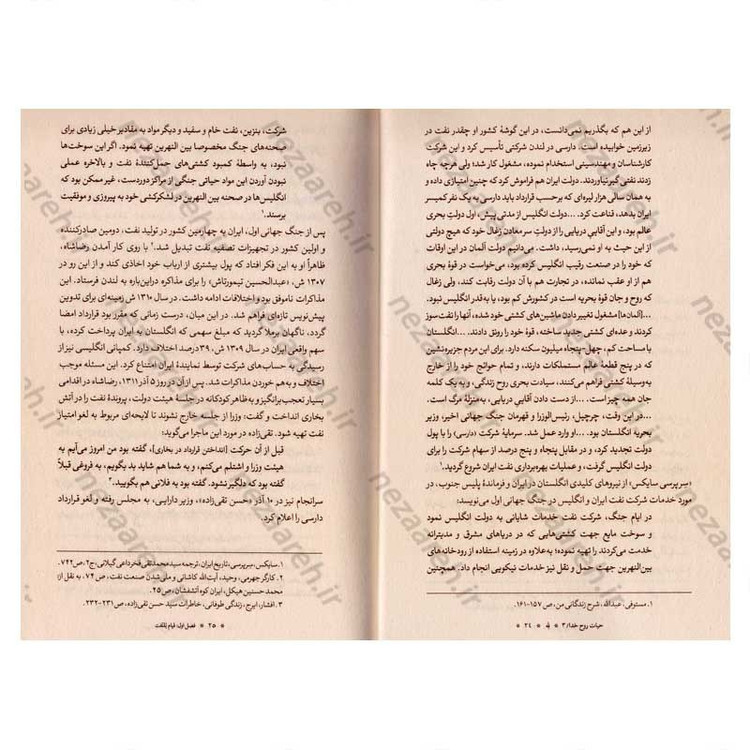 از این هم که بگذریم نمی‌دانست، در این گوشهٔ کشور او چقدر نفت در
زیرزمین خوابیده است. دارسی در لندن شرکتی تأسیس کرد و این شرکت
کارشناسان و مهندسینی استخدام نموده، مشغول کار شد؛ ولی هرچه چاه
زدند نفتی گیر نیاوردند. دولت ایران هم فراموش کرد که چنین امتیازی داده و
به همان سالی هزار لیره‌ای که برحسب قرارداد باید دارسی به یک نفر کمیسر
ایران بدهد، قناعت کرد. ...دولت انگلیس از مدتی پیش، اول دولتِ بحری
عالم بود، و این آقاییِ دریایی را از دولتِ سرِ معادنِ زغالِ خود که هیچ دولتی
از این حیث به او نمی‌رسید، داشت. می‌دانیم دولت آلمان در این اوقات
که خود را در صنعت رقیب انگلیس کرده بود، می‌خواست در قوهٔ بحریه
هم از او عقب نمانده، در تجارت هم با آن دولت رقابت کند، ولی زغال
که روح و جان قوهٔ بحریه است در کشورش کم بود، یا به‌قدر انگلیس نبود.
...[آلمان‌ها] مشغول تغییردادن ماشین‌های کشتی خود شده، آنها را نفت سوز
کردند و عده‌ای کشتی جدید ساخته، قوهٔ خود را رونق دادند. ...انگلستان
با مساحت کم، چهل-پنجاه میلیون سکنه دارد. این مردم جزیره‌نشین
در پنج قطعهٔ عالم مستملکات دارند، و تمام حوائج خود را از خارج
به‌وسیلهٔ کشتی فراهم می‌کنند، سیادت بحری روح زندگانی، و به یک کلمه
جان همه چیز است. ...از دست دادن آقایی دریایی، به‌منزلهٔ مرگ است.
...در این وقت، چرچیل، رئیس‌الوزرا و قهرمان جنگ جهانی اخیر، وزیر
بحریه انگلستان بود. ...او وارد عمل شد. سرمایهٔ شرکت (دارسی) را با پول
دولت تجدید کرد، و در مقابل پنجاه و پنج درصد از سهام شرکت را برای
دولت انگلیس گرفت، و عملیات بهره‌برداری نفت ایران شروع گردید.۱
«سِرپرسی سایکس» از نیروهای کلیدی انگلستان در ایران و فرماندهٔ پلیس جنوب، در
مورد خدمات شرکت نفت ایران و انگلیس در جنگ جهانی اول می‌نویسد:
در ایام جنگ، شرکت نفت خدمات شایانی به دولت انگلیس نمود
و سوخت مایع جهت کشتی‌هایی که در دریاهای مشرق و مدیترانه
خدمت می‌کردند را تهیه نموده؛ به‌علاوه در زمینه استفاده از رودخانه‌های
بین‌النهرین جهت حمل و نقل نیز خدمات نیکویی انجام داد. همچنین
۱. مستوفی، عبدالله، شرح زندگانی من، ص ۱۵۷-۱۶۱.
حیات روح خدا/۳ * ۲۴ *
شرکت، بنزین، نفت خام و سفید و دیگر مواد به مقادیر خیلی زیادی برای
صحنه‌های جنگ مخصوصا بین النهرین تهیه نمود. اگر این سوخت‌ها
نبود، به واسطهٔ کمبود کشتی‌های حمل‌کنندهٔ نفت و بالاخره عملی
نبودن آوردن این مواد حیاتی جنگی از مراکز دوردست، غیر ممکن بود که
انگلیس‌ها در صحنه بین النهرین در لشکرکشی خود به پیروزی و موفقیت
برسند.۱
پس از جنگ جهانی اول، ایران به چهارمین کشور در تولید نفت، دومین صادرکننده
و اولین کشور در تجهیزات تصفیه نفت تبدیل شد.۲ با روی کار آمدن رضاشاه،
ظاهراً او به این فکر افتاد که پول بیشتری از ارباب خود اخاذی کند و از این رو در
۱۳۰۷ ش، «عبدالحسین تیمورتاش» را برای مذاکره دراین‌باره به لندن فرستاد. این
مذاکرات ناموفق بود و اختلافات ادامه داشت. در سال ۱۳۱۰ ش زمینه‌ای برای تدوین
پیش‌نویس تازه‌ای فراهم شد. در این میان، درست زمانی که مقرر بود قرارداد امضا
گردد، ناگهان برملا گردید که مبلغ سهمی که انگلستان به ایران پرداخت کرده، با
سهم واقعی ایران در سال ۱۳۰۹ ش، ۳۹درصد اختلاف دارد. کمپانی انگلیسی نیز از
رسیدگی به حساب‌های شرکت توسط نمایندهٔ ایران امتناع کرد. این مسئله موجب
اختلاف و به‌هم خوردن مذاکرات شد. پس از آن در روز ۵ آذر۱۳۱۱، رضاشاه در اقدامی
بسیار تعجب‌برانگیز و به‌ظاهر کودکانه در جلسهٔ هیئت دولت، پروندهٔ نفت را در آتش
بخاری انداخت و گفت: وزرا از جلسه خارج نشوند تا لایحه‌ای مربوط به لغو امتیاز
نفت تهیه شود. تقی‌زاده در مورد این ماجرا می‌گوید:
قبل از آن حرکت [انداختن قرارداد در بخاری]، گفته بود من امروز می‌آیم به
هیئت وزرا و اشتلم می‌کنم، و به شما هم شاید بد بگویم، به فروغی قبلاً
گفته بود که دلگیر نشود. گفته بود به فلانی هم بگویید.۳
سرانجام نیز در ۱۰ آذر «حسن تقی‌زاده»، وزیر دارایی، به مجلس رفته و لغو قرارداد
دارسی را اعلام کرد.
۱. سایکس، سِرپرسی، تاریخ ایران، ترجمه سیدمحمدتقی فخرداعی گیلانی، ج۲، ص۷۴۲.
۲. کارگر جهرمی، وحید، آیت‌الله کاشانی و ملی‌شدن صنعت نفت، ص ۷۴، به نقل از:
محمد حسنین هیکل، ایران کوه آتشفشان، ص۲۵.
۳. افشار، ایرج، زندگی طوفانی، خاطرات سید حسن تقی‌زاده، ص۲۳۱-۲۳۲.
* ۲۵ * فصل اول: قیام نِقْمَت
nezaareh.ir